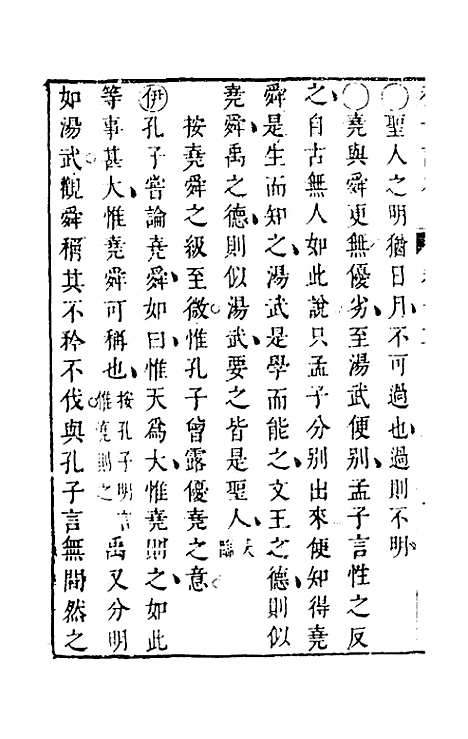 ○聖人之明猶日月不可過也過則不明
○堯與舜更無優劣至湯武便別孟子言性之反
之自古無人如此說只孟子分别出來便知得堯
舜是生而知之湯武是學而能之文王之德則似
堯舜禹之德則似湯武要之皆是聖人
按堯舜之級至微惟孔子曾露優堯之意
伊孔子嘗論堯舜如曰惟天爲大惟堯則之如此
等事甚大惟堯舜可稱也按孔子明言惟堯則之禹又分明
如湯武觀舜稱其不矜不伐與孔子言無間然之